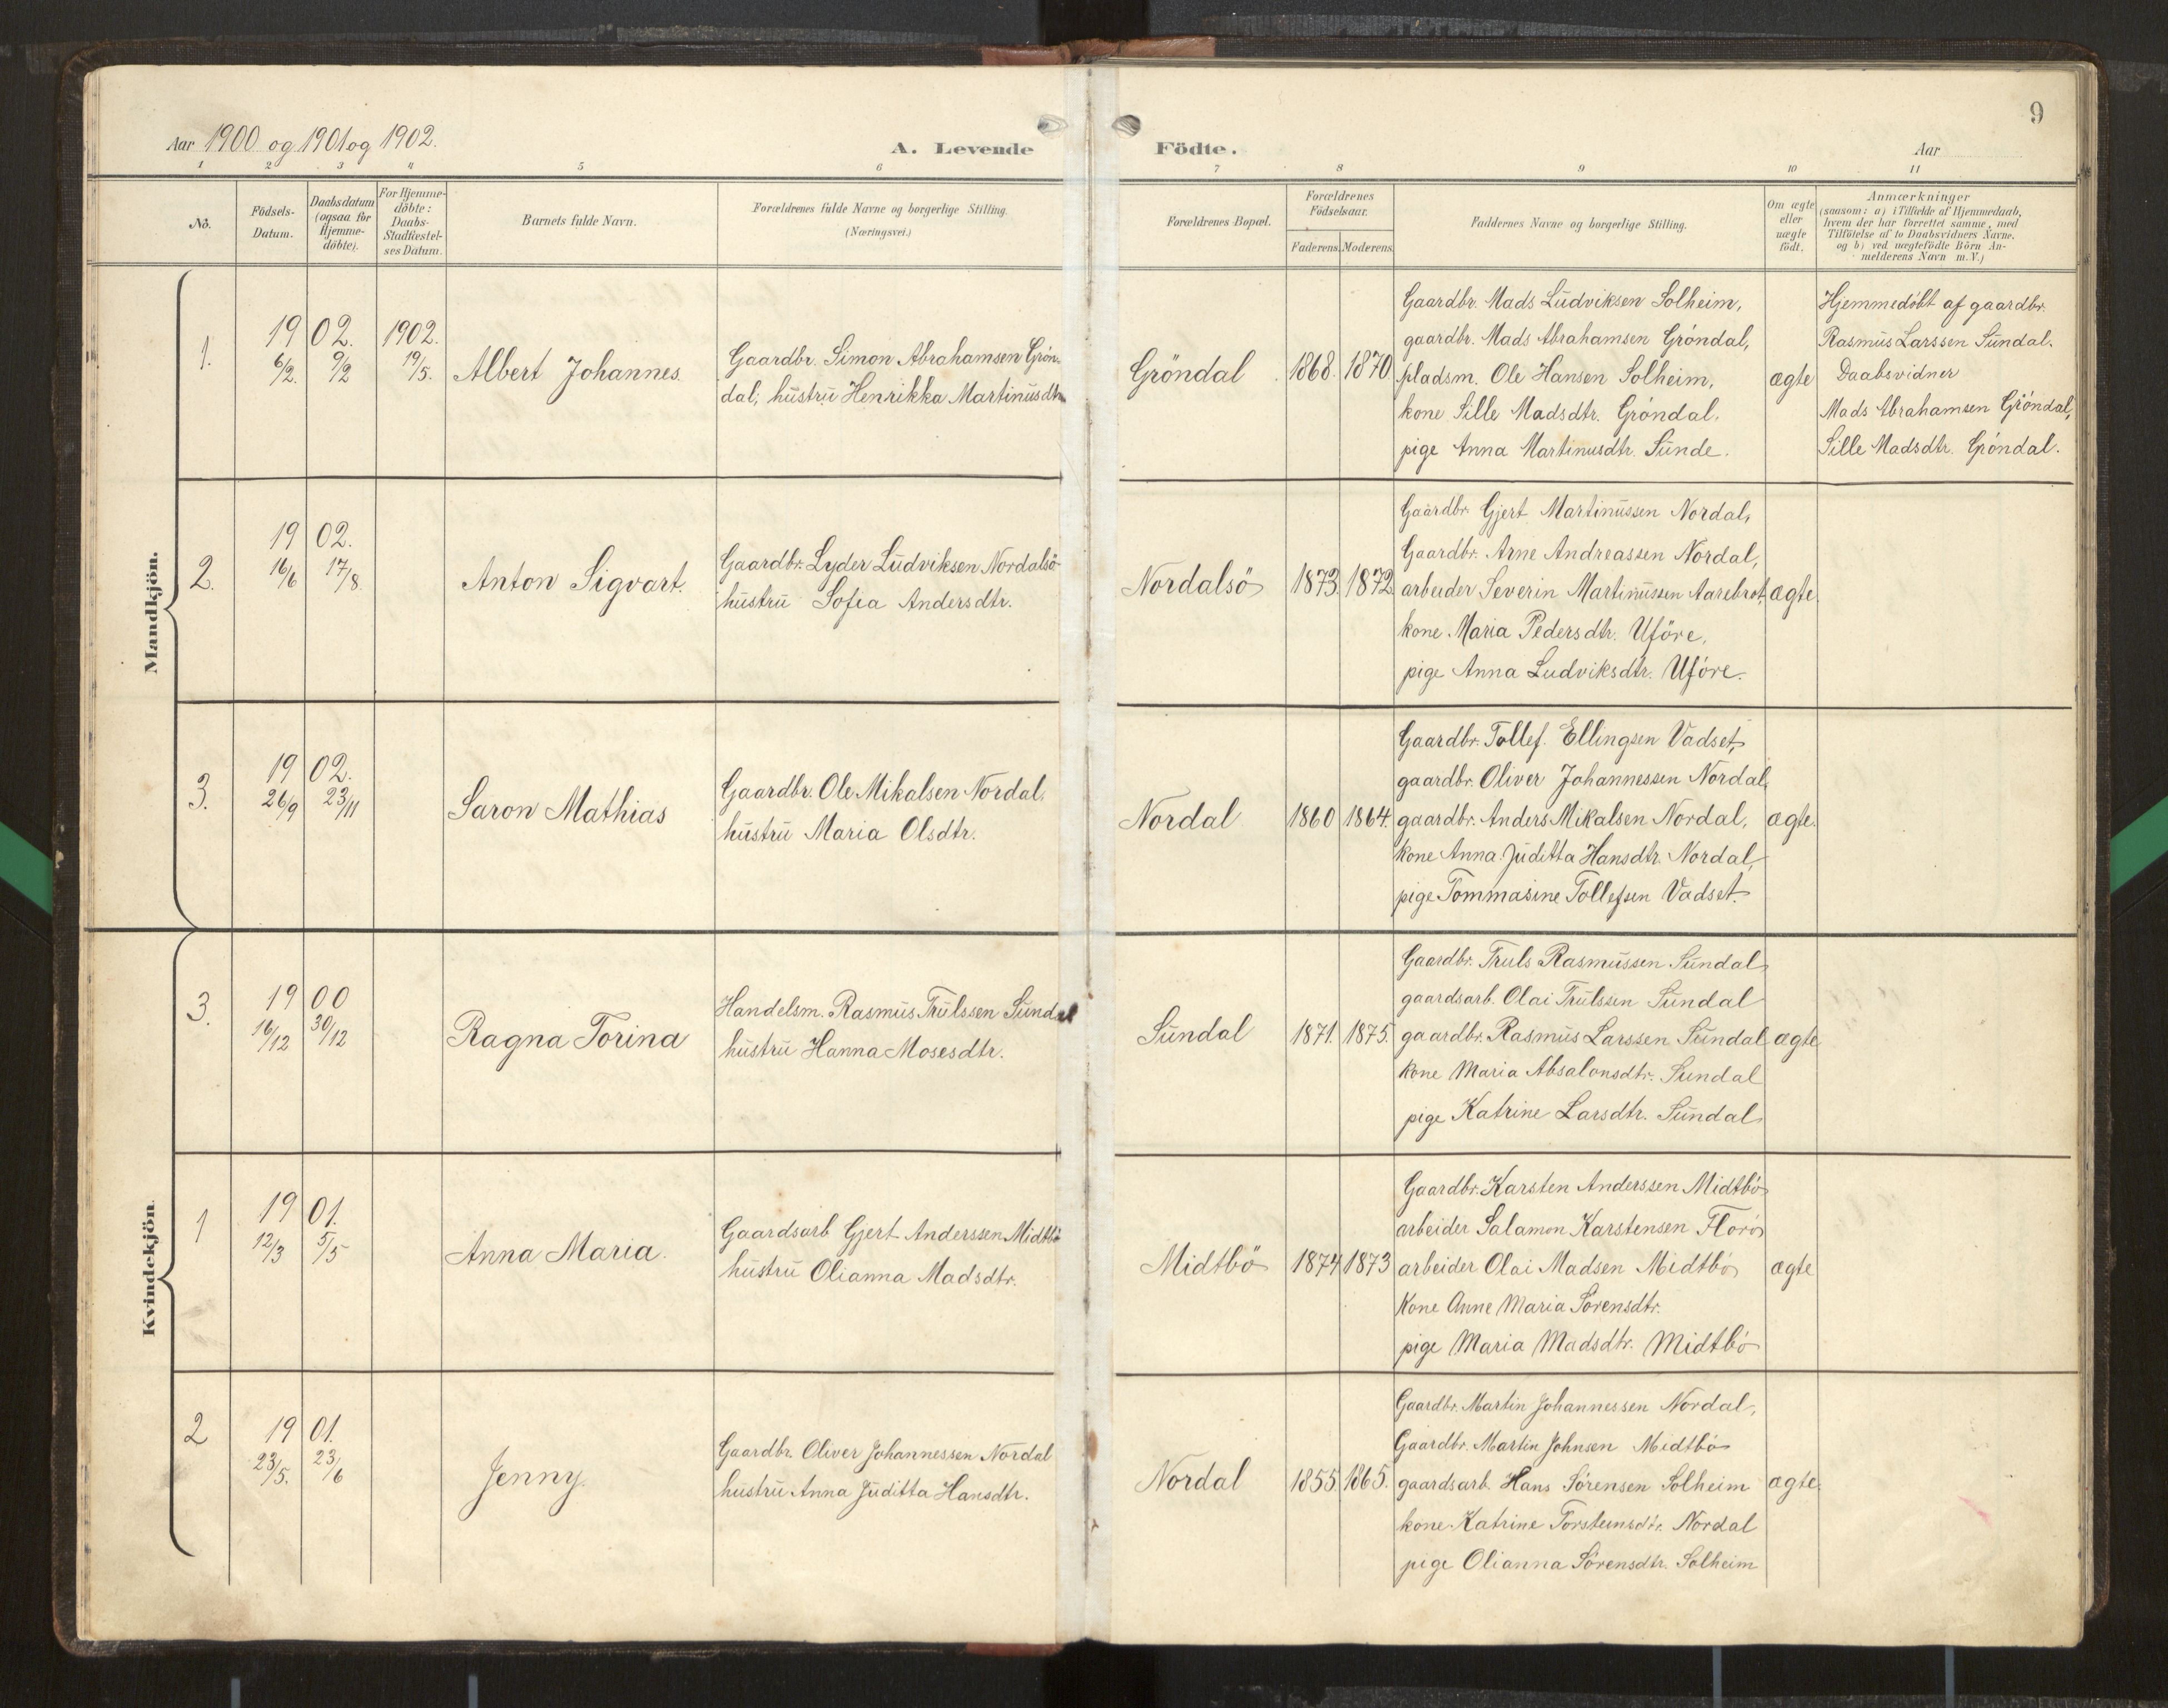 9
Aar 1900 og 1901 og 1902.
A. Levende Födte.
Aar
1 2 3 4 5 6 7 8 9 10 11
No.
Födsels-Datum.
Daabsdatum (ogsaa for Hjemme-döbte).
For Hjemme-döbte: Daabs-Stadfæstel-ses Datum.
Barnets fulde Navn.
Forældrenes fulde Navne og borgerlige Stilling.
(Næringsvei.)
Forældrenes Bopæl.
Forældrenes Födselsaar.
Faderens. Moderens.
Faddernes Navne og borgerlige Stilling.
Om ægte eller uægte födt.
Anmærkninger
(saasom: a) i Tilfælde af Hjemmedaab,
hvem der har forrettet samme, med
Tilföielse af to Daabsvidners Navne,
og b) ved uægtefödte Börn An-
melderens Navn m.V.)
Mandkjön.
1.
1902. 1902.
6/2. 9/2 19/5.
Albert Johannes
Gaardbr. Simon Abrahamsen Grön-
dal, hustru Henrikka Martinusdtr
Gröndal
1868. 1870
Gaardbr. Mads Ludviksen Solheim,
gaardbr. Mads Abrahamsen Gröndal,
pladsm. Ole Hansen Solheim,
kone Sille Madsdtr. Gröndal.
pige Anna Martinusdtr. Sunde.
ægte
Hjemmedöbt af gaardbr.
Rasmus Larssen Sundal.
Daabsvidner
Mads Abrahamsen Gröndal,
Sille Madsdtr. Gröndal.
2.
1902.
16/6 17/8.
Anton Sigvart.
Gaardbr. Lyder Ludviksen Nordalsö
hustru Sofia Andersdtr.
Nordalsö
1873. 1872.
Gaardbr. Gjert Martinussen Nordal,
Gaardbr. Arne Andreassen Nordal,
arbeider Severin Martinussen Aarebrot,
kone Maria Pedersdtr. Uföre,
pige Anna Ludviksdtr. Uföre.
ægte.
3.
1902.
26/9 23/11
Saron Mathias
Gaardbr. Ole Mikalsen Nordal.
hustru Maria Olsdtr.
Nordal
1860 1864.
Gaardbr. Tollef. Ellingsen Vadset,
gaardbr. Oliver Johannessen Nordal,
gaardbr. Anders Mikalsen Nordal,
kone Anna Juditta Hansdtr. Nordal,
pige Tommasine Tollefsen Vadset.
ægte.
Kvindekjön.
3.
1900
16/12 30/12
Ragna Torina
Handelsm. Rasmus Trulssen Sundal
hustru Hanna Mosesdtr.
Sundal
1871. 1875.
Gaardbr. Truls Rasmussen Sundal
gaardsarb. Olai Trulssen Sundal
gaardbr. Rasmus Larssen Sundal
kone Maria Absalonsdtr. Sundal
pige Katrine Larsdtr. Sundal
ægte
1
1901.
12/3 5/5
Anna Maria.
Gaardsarb Gjert Anderssen Midtbö
hustru Olianna Madsdtr.
Midtbö
1874 1873
Gaardbr. Karsten Anderssen Midtbö
arbeider Salamon Karstensen Florö
arbeider Olai Madsen Midtbö
Kone Anne Maria Sörensdtr.
pige Maria Madsdtr. Midtbö
ægte
2
1901.
23/5. 23/6
Jenny.
Gaardbr. Oliver Johannessen Nordal
hustru Anna Juditta Hansdtr.
Nordal
1855 1865.
Gaardbr. Martin Johannessen Nordal,
Gaardbr. Martin Johnsen Midtbö
gaardsarb. Hans Sörensen Solheim
kone Katrine Torsteinsdtr. Nordal
pige Olianna Sörensdtr. Solheim
ægte.